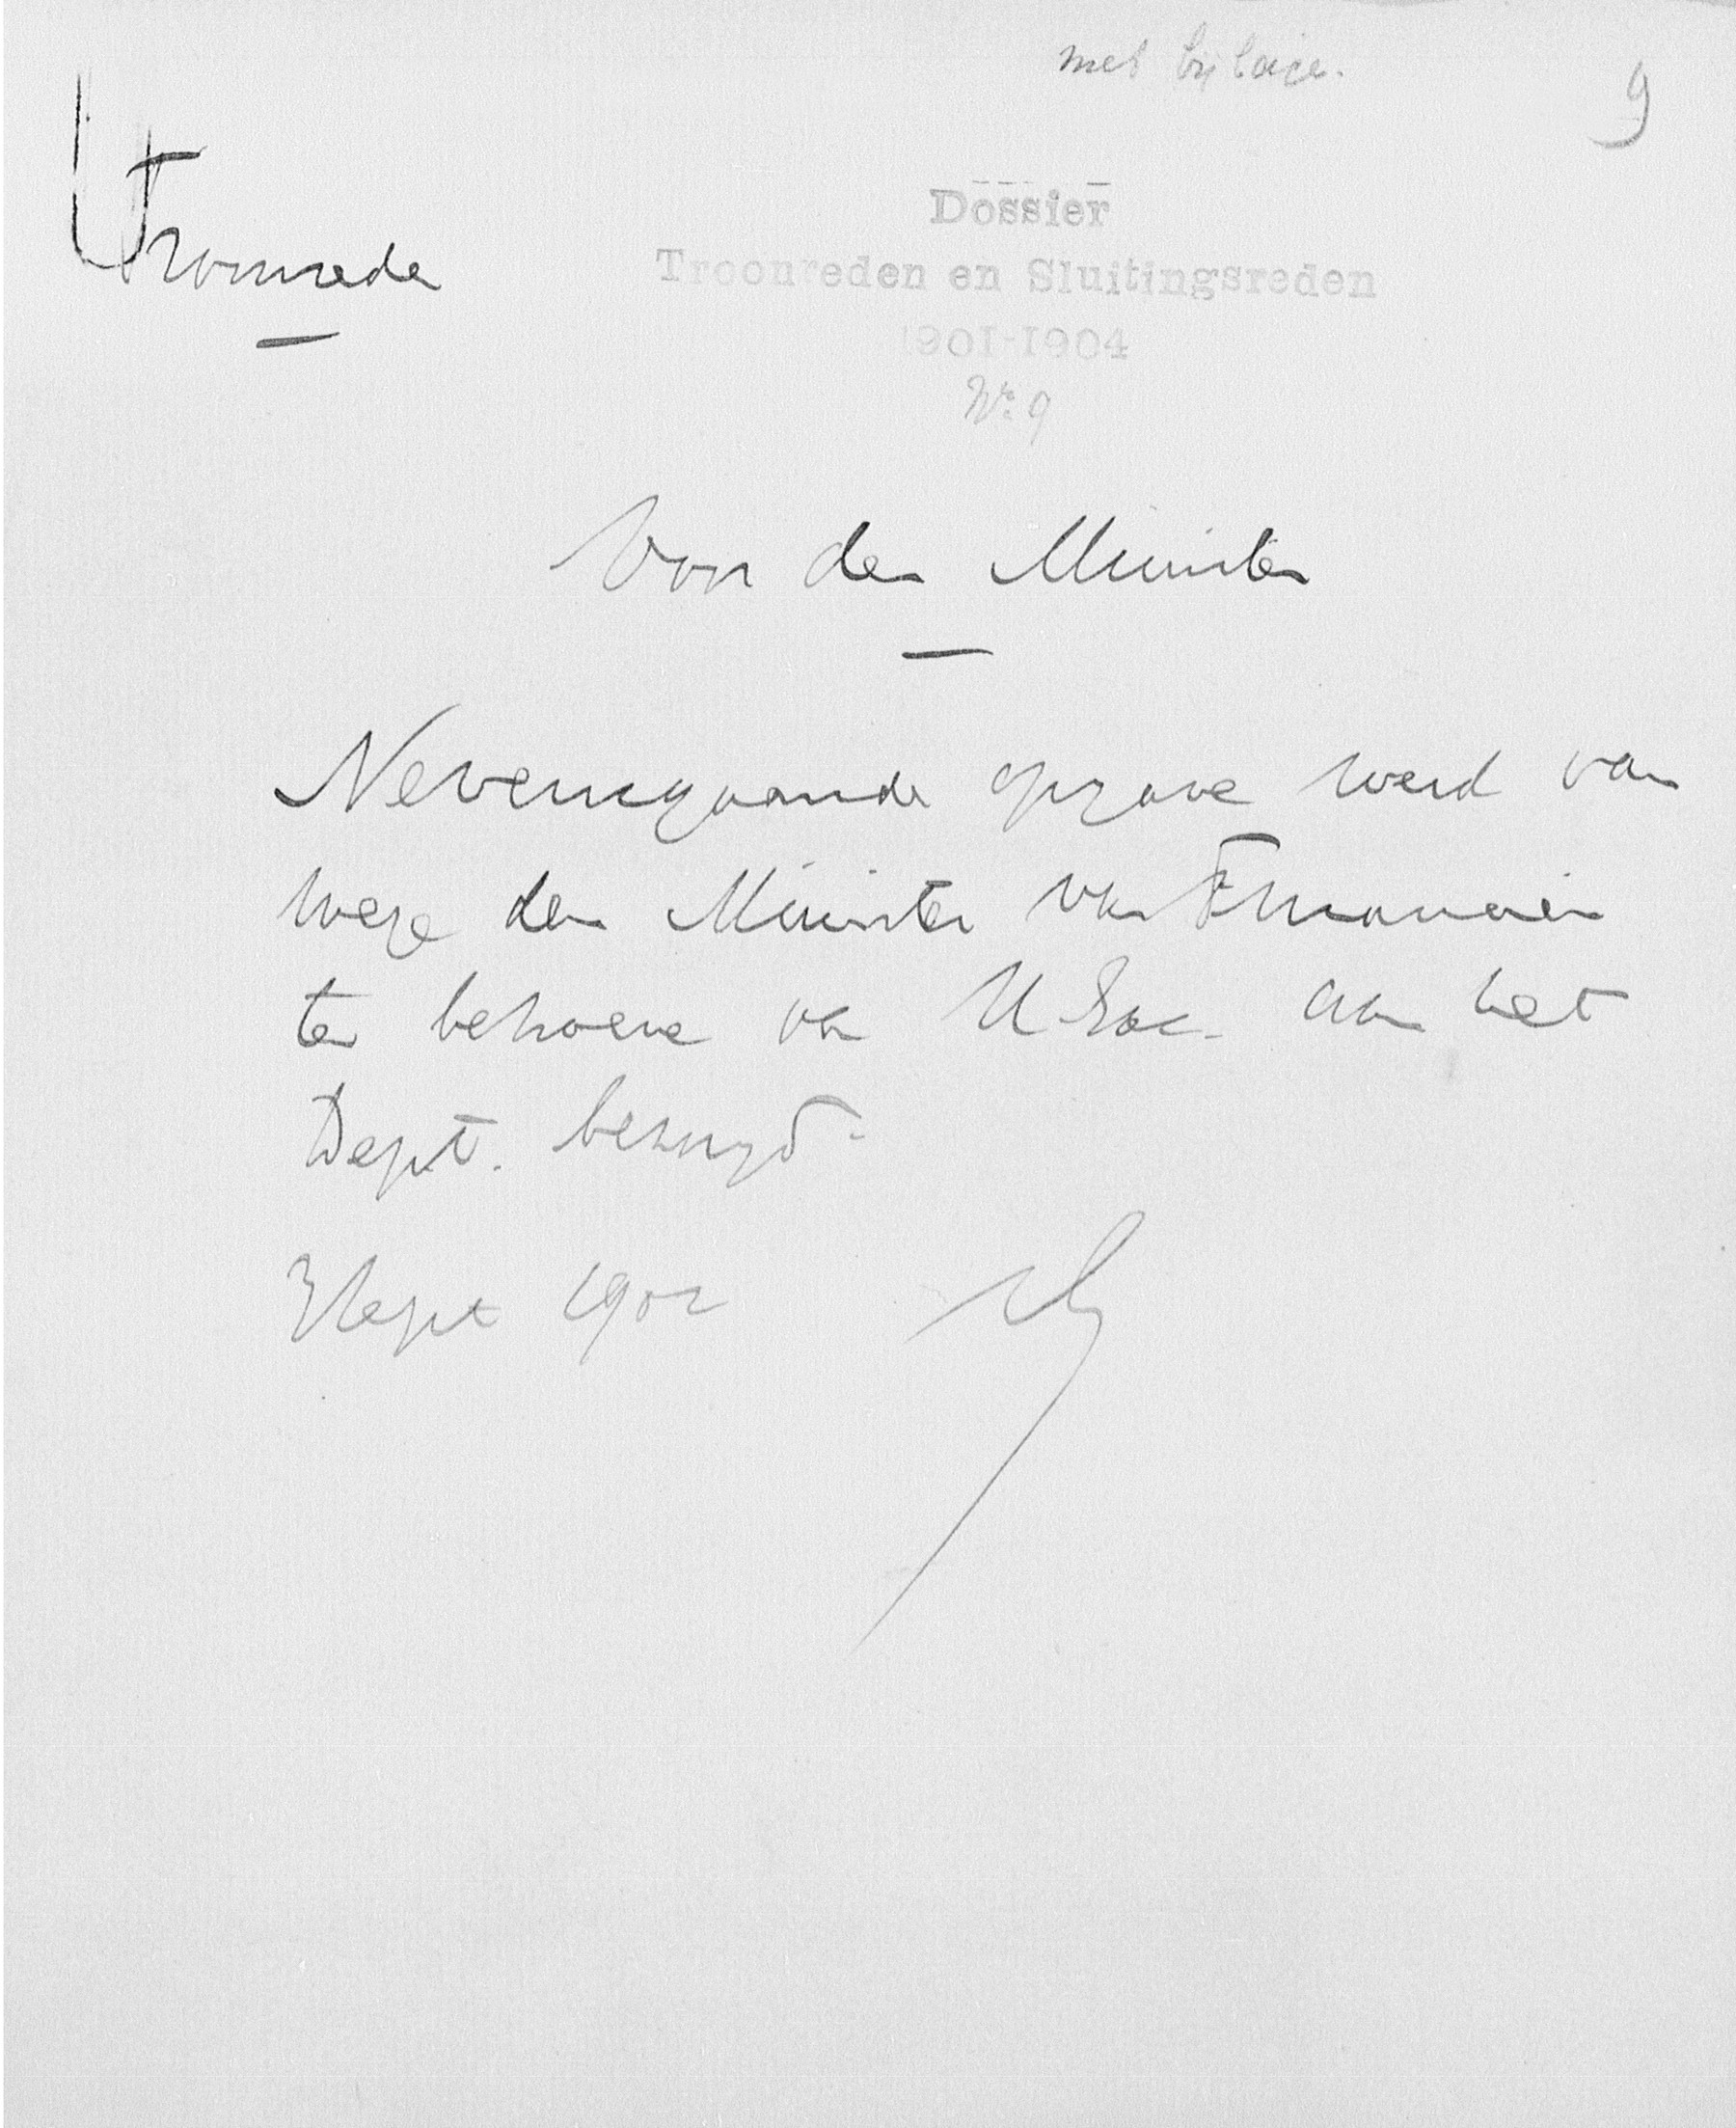 met bijlage.
9
Troonrede
Dossier
Troonreden en Sluitingsreden
1901-1904
No. 9
Voor den Minister
Nevensgaande opgave werd van
wege den Minister van Financien
ten behoeve van U Exc. aan het
Dept. bezorgd.
3 Sept 1902